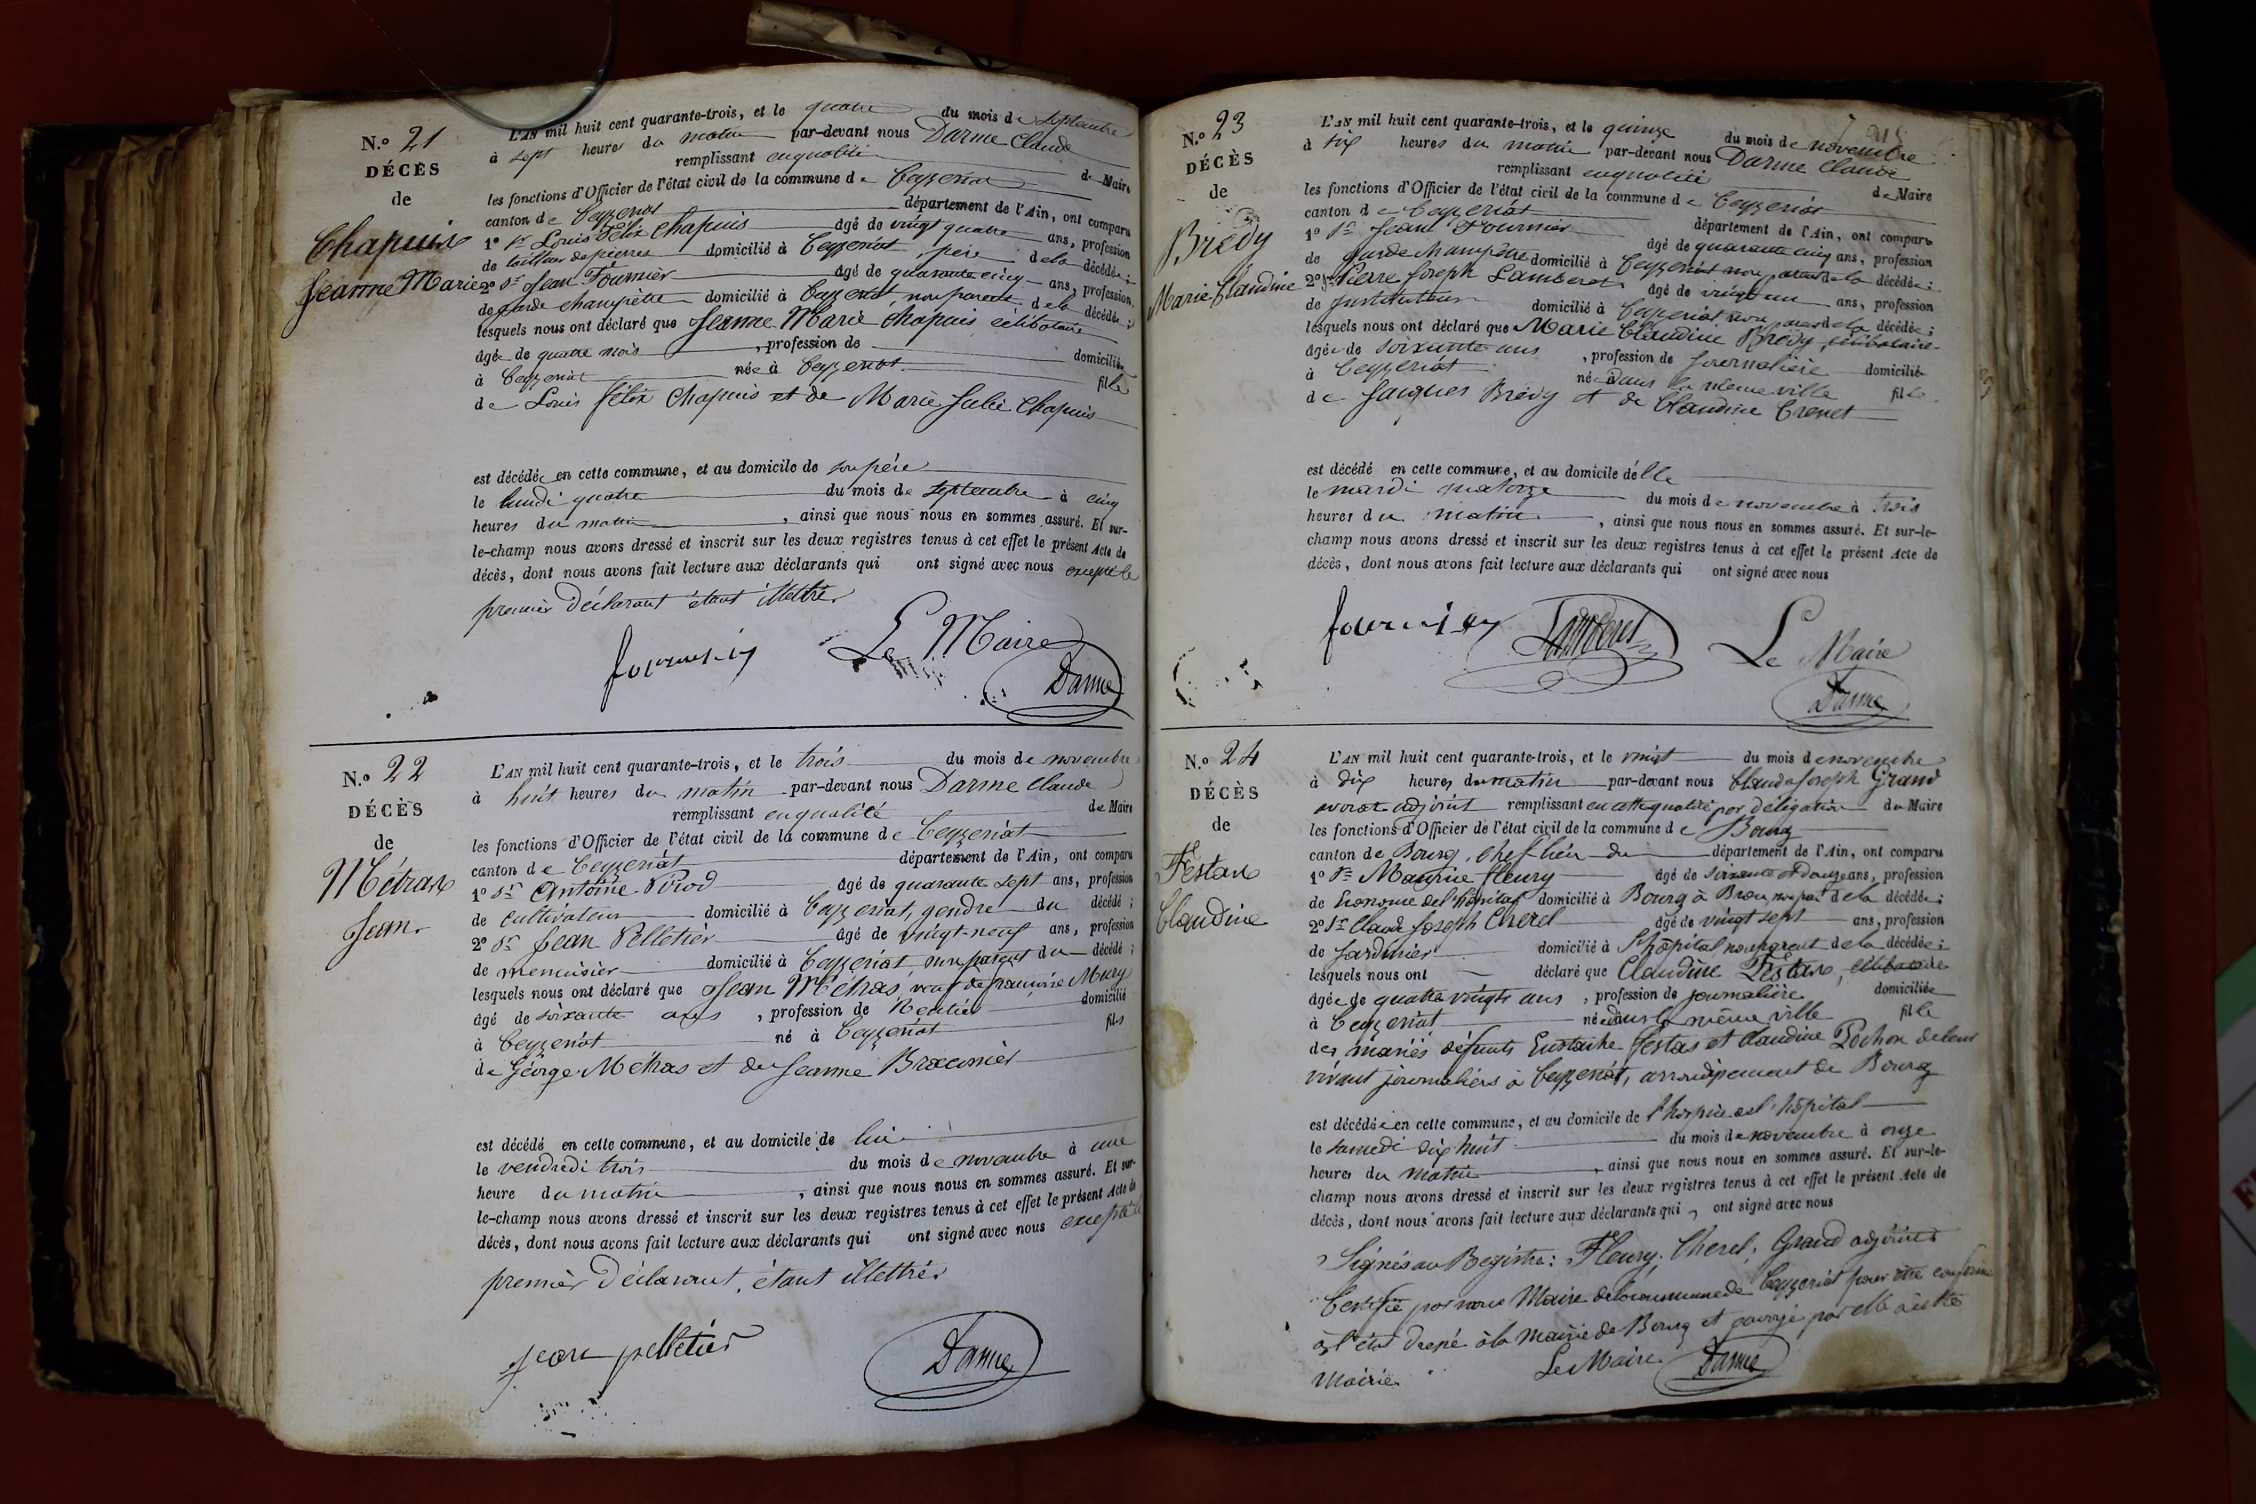 N.o 21
DÉCÈS
de
Chapuis
Jeanne Marie
L'AN mil huit cent quarante-trois, et le quatre du mois de septembre
à sept heures du matin par-devant nous Darme Claude
remplissant en qualité de Maire
les fonctions d'Officier de l'état civil de la commune de Ceyzeriat
canton de Ceyzeriat département de l'Ain, ont comparu
1o Sr Louis Félix Chapuis âgé de vingt quatre ans, profession
de tailleur de pierres domicilié à Ceyzeriat, père de la décédée;
2o Sr Jean Fournier âgé de quarante cinq ans, profession
de garde champêtre domicilié à Ceyzeriat, non parent de la décédée;
lesquels nous ont déclaré que Jeanne Marie Chapuis célibataire
âgée de quatre mois, profession de domiciliée
à Ceyzeriat née à Ceyzeriat fille
de Louis félix Chapuis et de Marie Julie Chapuis
est décédée en cette commune, et au domicile de son père
le lundi quatre du mois de septembre à cinq
heures du matin, ainsi que nous nous en sommes assuré. Et sur-
le-champ nous avons dressé et inscrit sur les deux registres tenus à cet effet le présent Acte de
décès, dont nous avons fait lecture aux déclarants qui ont signé avec nous excepté le
premier déclarant étant illettré.
fournier Le Maire
Darme
N.o 22
DÉCÈS
de
Métras
Jean
L'AN mil huit cent quarante-trois, et le trois du mois de novembre
à huit heures du matin par-devant nous Darme Claude
remplissant en qualité de Maire
les fonctions d'Officier de l'état civil de la commune de Ceyzeriat
canton de Ceyzeriat département de l'Ain, ont comparu
1o Sr Antoine Pirod âgé de quarante sept ans, profession
de cultivateur domicilié à Ceyzeriat, gendre du décédé;
2o Sr Jean Pelletier âgé de vingt-neuf ans, profession
de menuisier domicilié à Ceyzeriat non parent du décédé;
lesquels nous ont déclaré que Jean Métras, veuf de
âgé de soixante ans, profession de Rentier domicilié
à Ceyzeriat né à Ceyzeriat fils
de George Métras et de Jeanne
est décédé en cette commune, et au domicile de lui
le vendredi trois du mois de novembre à une
heure du matin, ainsi que nous nous en sommes assuré. Et sur-
le-champ nous avons dressé et inscrit sur les deux registres tenus à cet effet le présent Acte de
décès, dont nous avons fait lecture aux déclarants qui ont signé avec nous excepté le
premier déclarant, étant illettré
jean pelletier Darme
N.o 23
DÉCÈS
de
Brédy
Marie Claudine
L'AN mil huit cent quarante-trois, et le quinze du mois de novembre
à dix heures du matin par-devant nous Darme Claude
remplissant en qualité de Maire
les fonctions d'Officier de l'état civil de la commune de Ceyzeriat
canton de Ceyzeriat département de l'Ain, ont comparu
1o Sr Jean Fournier âgé de quarante cinq ans, profession
de garde champêtre domicilié à Ceyzeriat non parent de la décédée;
2o Sr Pierre Joseph Lamberet âgé de vingt un ans, profession
de Instituteur domicilié à Ceyzeriat non parent de la décédée;
lesquels nous ont déclaré que Marie Claudine Brédy, célibataire
âgée de soixante ans, profession de journalière domiciliée
à Ceyzeriat née dans la même ville fille
de Jacques Brédy et de Claudine Crenet
est décédé en cette commune, et au domicile d'elle
le mardi quatorze du mois de novembre à trois
heures du matin, ainsi que nous nous en sommes assuré. Et sur-le-
champ nous avons dressé et inscrit sur les deux registres tenus à cet effet le présent Acte de
décès, dont nous avons fait lecture aux déclarants qui ont signé avec nous
fournier Lamberet Le Maire
Darme
N.o 24
DÉCÈS
de
Festas
Claudine
L'AN mil huit cent quarante-trois, et le vingt du mois de novembre
à dix heures du matin par-devant nous Claude Joseph Grand
avocat adjoint remplissant en cette qualité par délégation du Maire
les fonctions d'Officier de l'état civil de la commune de Bourg
canton de Bourg, chef-lieu du département de l'Ain, ont comparu
1o Sr Maurice fleury âgé de soixante et douze ans, profession
de Économe de l'hôpital domicilié à Bourg à Brou, non par. de la décédée;
2o Sr Claude Joseph Cherel âgé de vingt sept ans, profession
de Jardinier domicilié à l'hôpital, non parent de la décédée;
lesquels nous ont déclaré que Claudine Festas, célibataire
âgée de quatre vingts ans, profession de journalière domiciliée
à Ceyzeriat née dans la même ville fille
des mariés défunts Eustache festas et Claudine Pochon de leur
vivant journaliers à Ceyzeriat, arrondissement de Bourg
est décédée en cette commune, et au domicile de l'hospice est l'hôpital
le samedi dix huit du mois de novembre à onze
heures du matin, ainsi que nous nous en sommes assuré. Et sur-le-
champ nous avons dressé et inscrit sur les deux registres tenus à cet effet le présent Acte de
décès, dont nous avons fait lecture aux déclarants qui ont signé avec nous
Signés au Registre: Fleury, Cherel, Grand adjoint
Certifié par nous Maire de la commune de Ceyzeriat pour être conforme
à l'état dressé à la Mairie de Bourg et envoyé par elle à cette
Mairie. Le Maire Darme